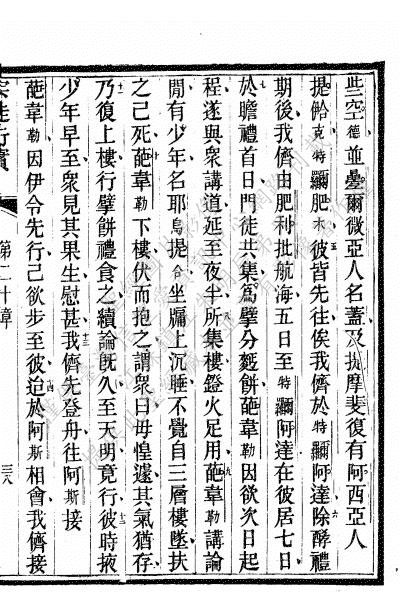 些空德並壘爾微亞人名蓋及提摩斐復有阿西亞人
提鮯克特黼肥木彼皆先往俟我儕於特黼阿達除酵禮
期後我儕由肥利批航海五日至特黼阿達在彼居七日
於瞻禮首日門徒共集爲擘分麪餅葩韋勒因欲次日起
程遂與衆講道延至夜半所集樓鐙火足用葩韋勒講論
閒有少年名耶烏提合坐牖上沉睡不覺自三層樓墜扶
之已死葩韋勒下樓伏而抱之謂衆曰毋惶遽其氣猶存
乃復上樓行擘餅禮食之續論旣久至天明竟行彼時掖
少年早至衆見其果生慰甚我儕先登舟往阿斯接
葩韋勒因伊令先行己欲步至彼迨於阿斯相會我儕接
宗徒行實
第二十章